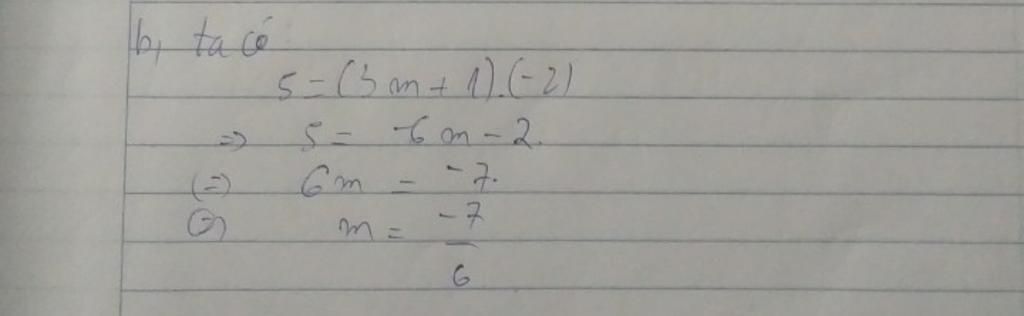 b, ta có
5 = (3m + 1).(-2)
=> 5 = -6m - 2.
(=) 6m = -7.
(=) m = -7/6